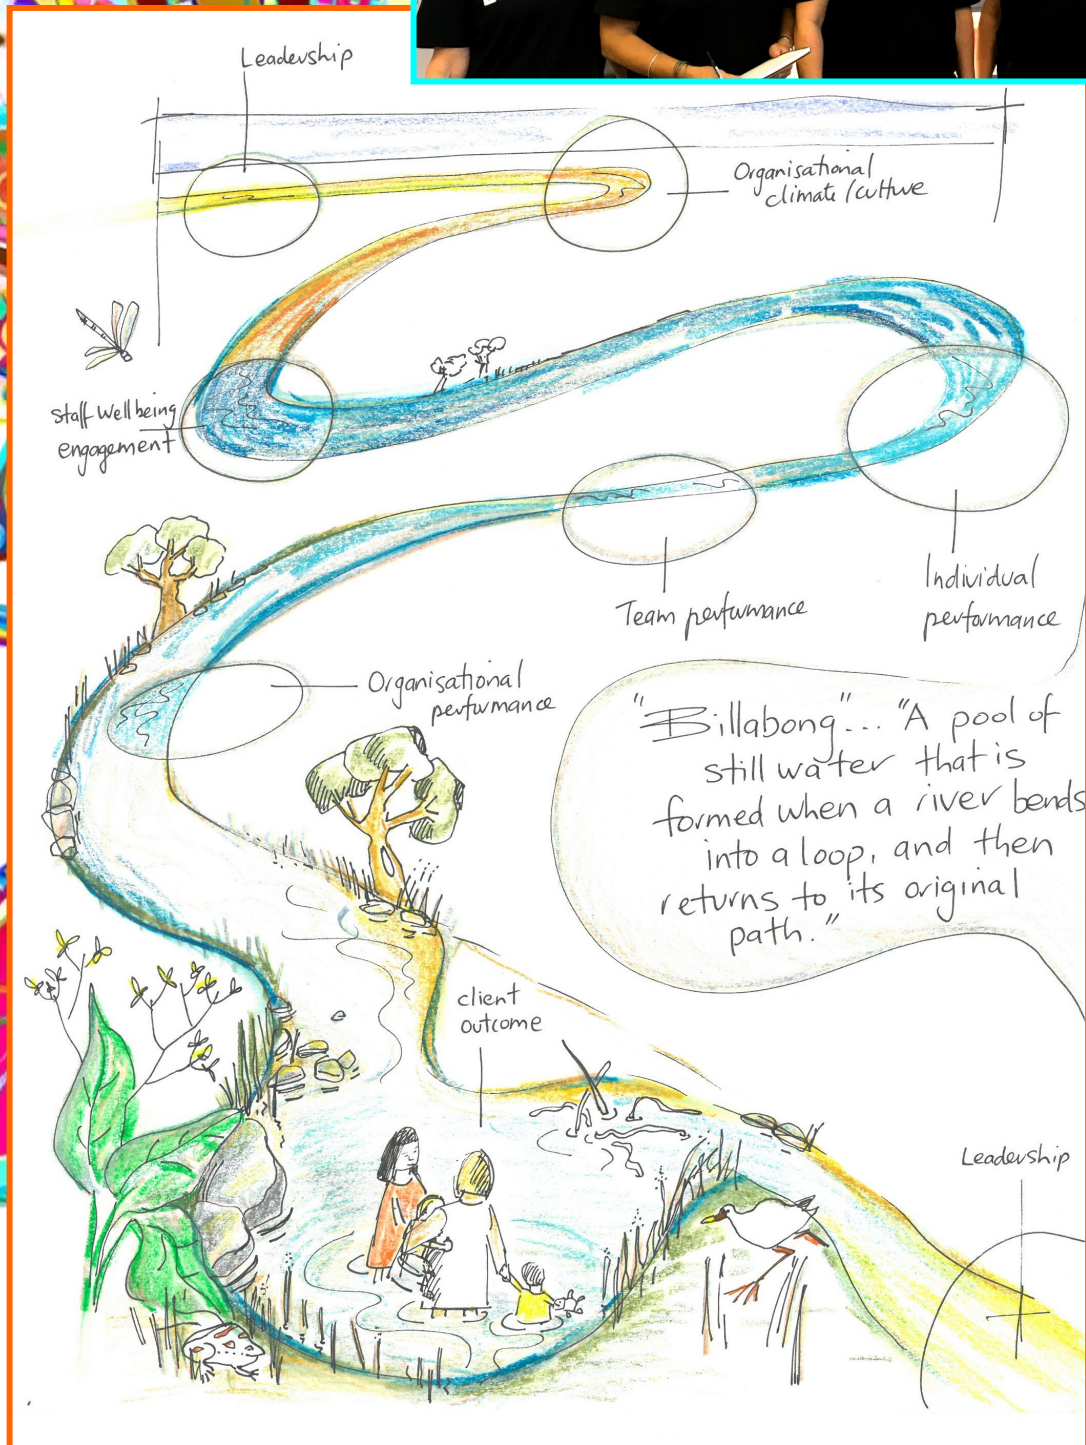 Leadership
Organisational
climate/culture
Staff Wellbeing
engagement
Individual
performance
Team performance
Organisational
performance
"Billabong"... "A pool of
still water that is
formed when a river bends
into a loop, and then
returns to its original
path."
client
outcome
Leadership